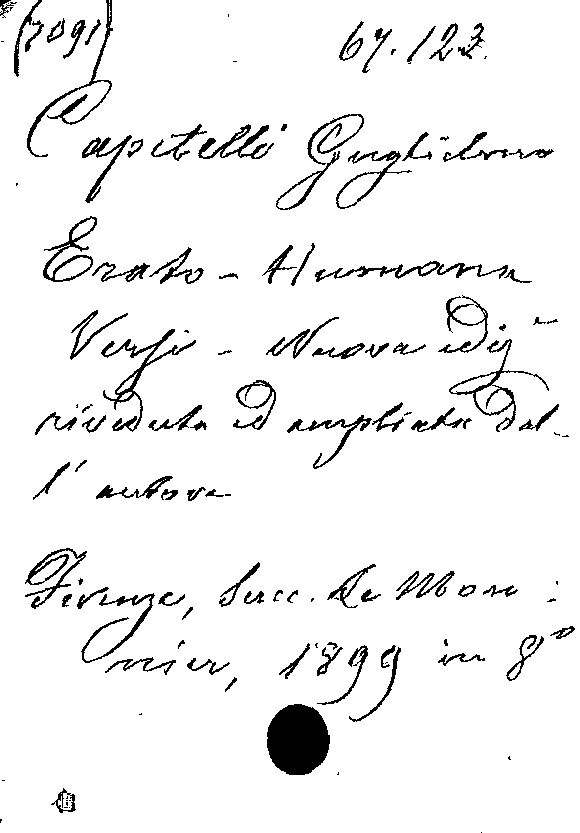 (7091)
67.122
Capitelli Guglielmo
Erato - Humana
Versi - Nuova ediz
riveduta ed ampliata dal-
l'autore
Firenze, Succ. Le Mon:
nier, 1899 in 8º